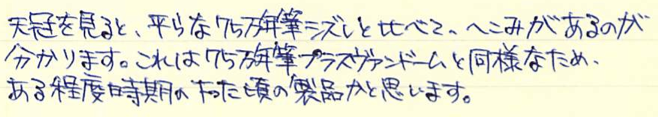 天冠を見ると、平らな75万年筆ミズレと比べて、へこみがあるのが
分かります。これは75万年筆プラスヴァンドームと同様なため、
ある程度時期の たった頃の製品かと思います。